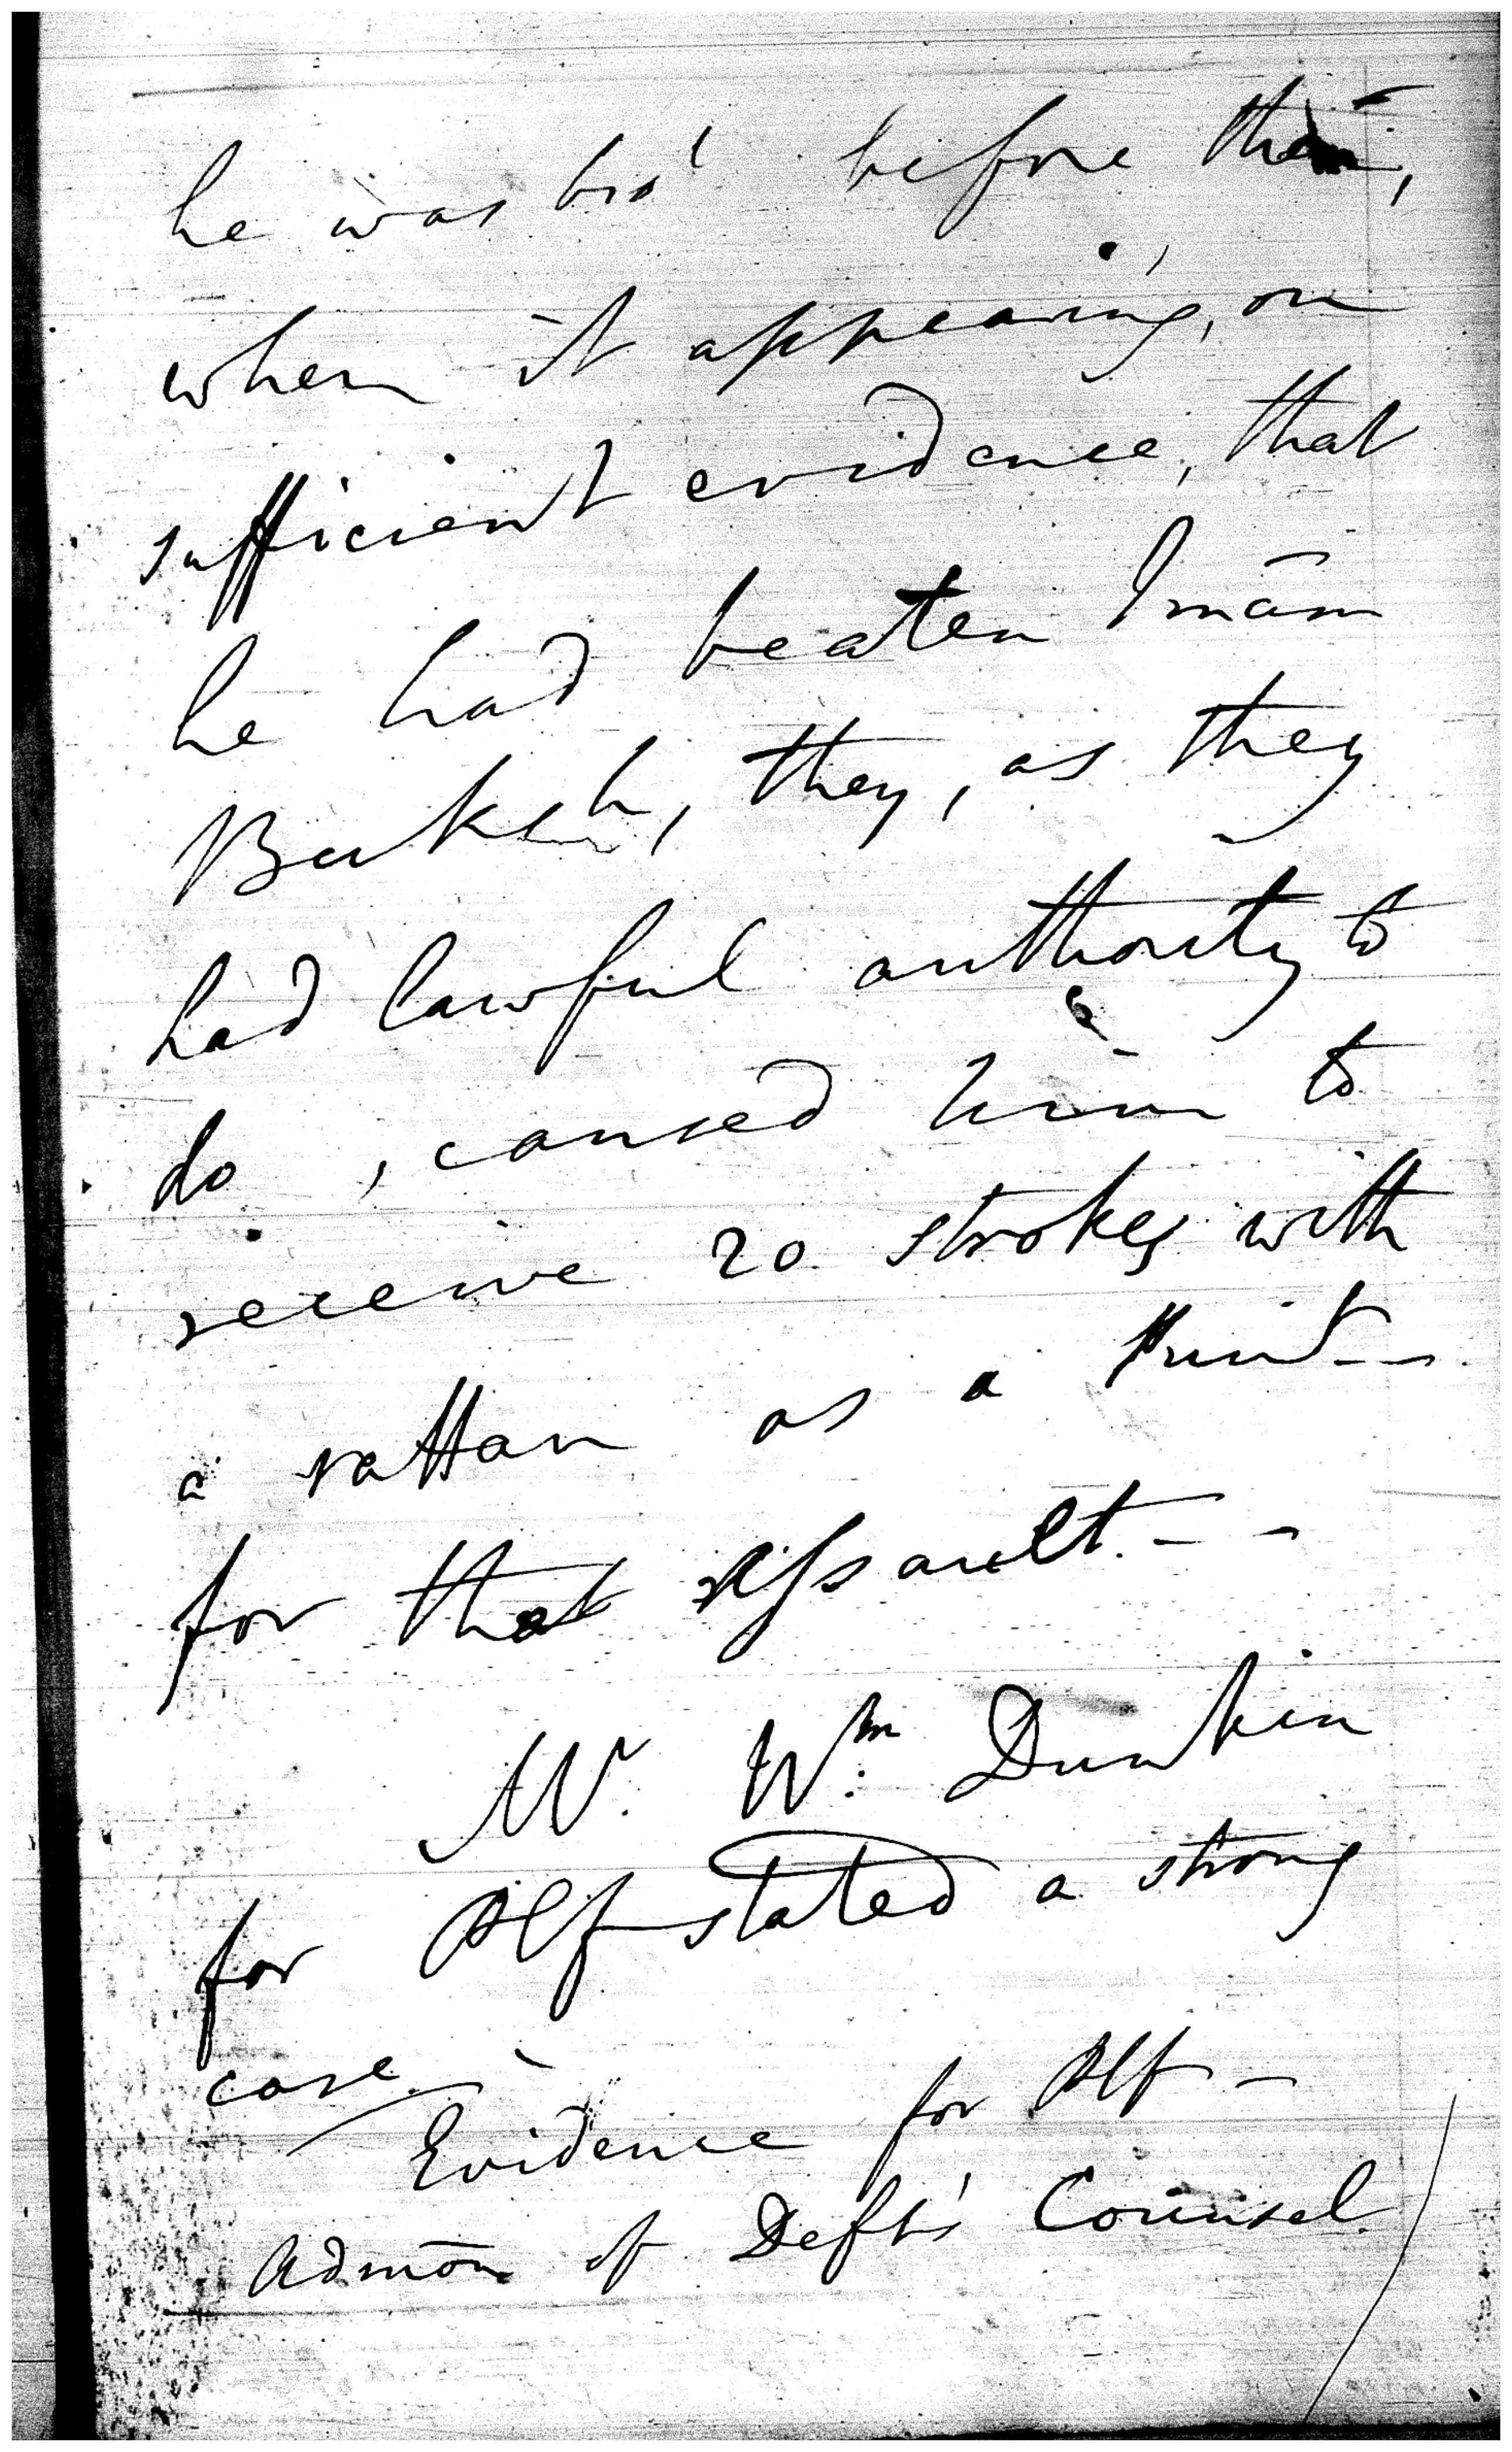 he was bro' before them,
when it appearing, on
sufficient evidence, that
he had beaten Imām
Buksh, they, as they
had lawful authority to
do, caused him to
receive 20 strokes with
a rattan as a
for that assault. - -
Mr. Wm. Dunkin
for Plf stated a strong
case. -
Evidence for Plf -
Admōn of Deft's Counsel